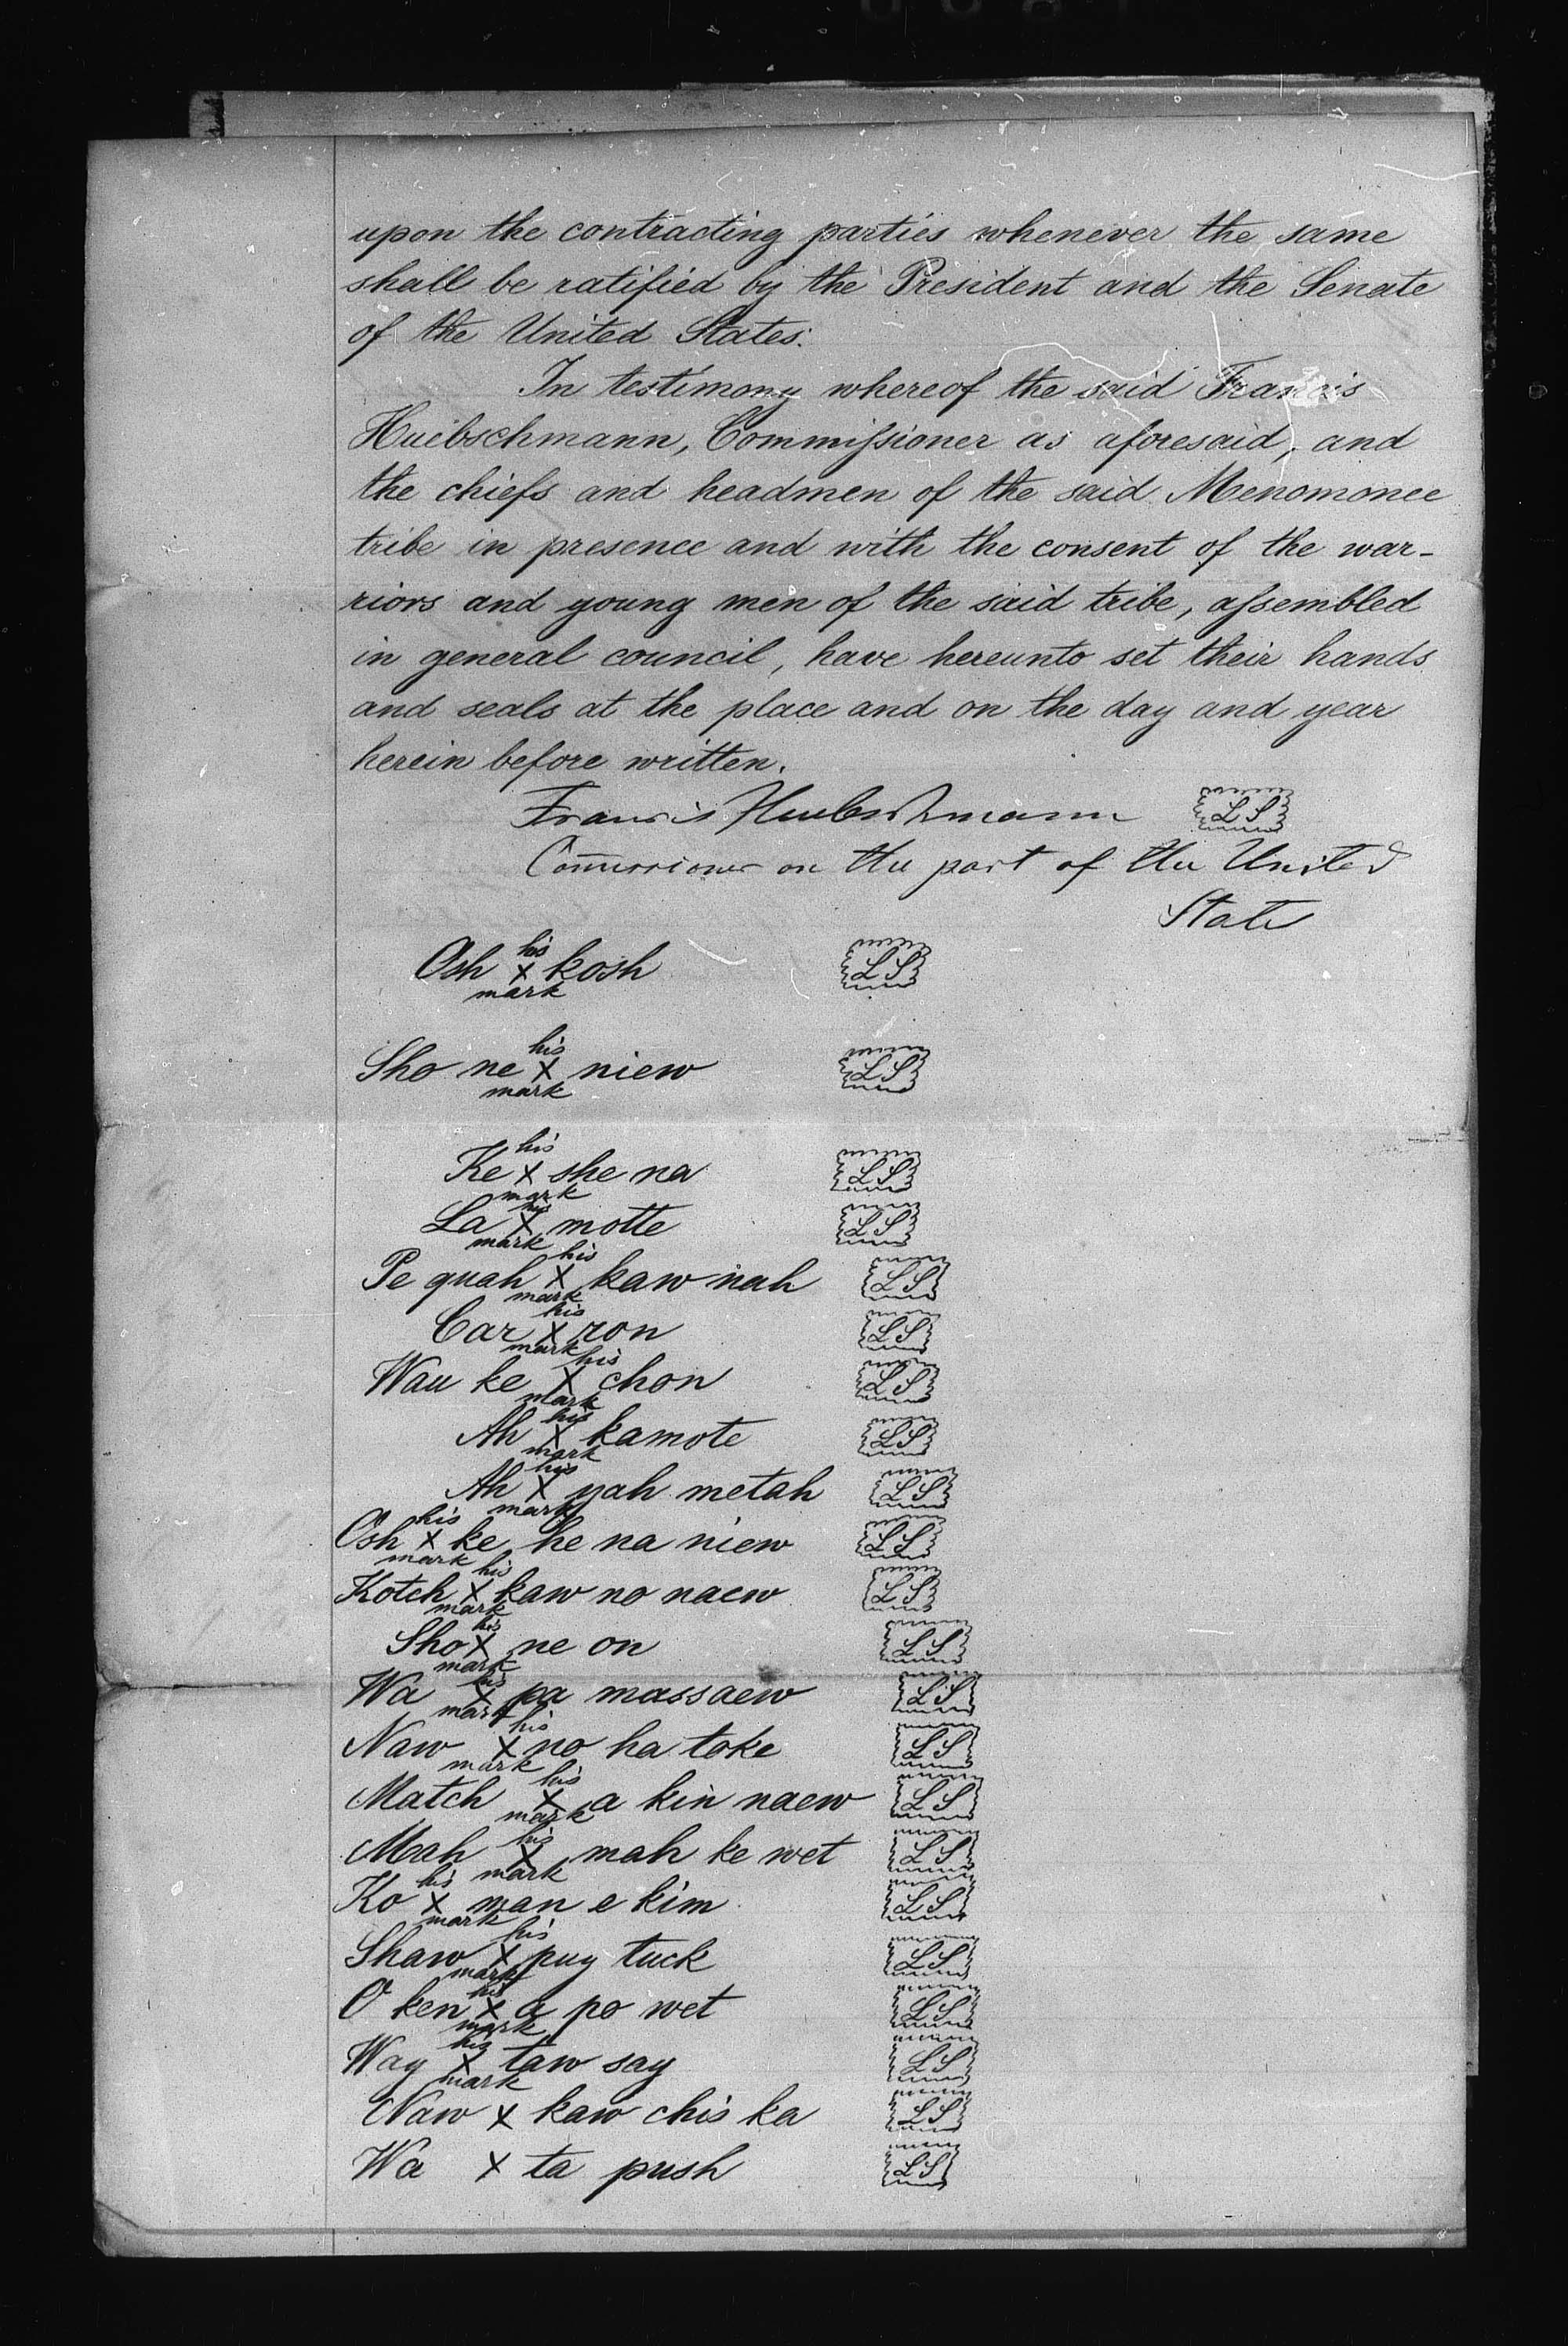 upon the contracting parties whenever the same
shall be ratified by the President and the Senate
of the United States.
In testimony whereof the said Francis
Huebschmann, Commissioner as aforesaid, and
the chiefs and headmen of the said Menomonee
tribe in presence and with the consent of the war-
riors and young men of the said tribe, assembled
in general council, have hereunto set their hands
and seals at the place and on the day and year
herein before written.
Francis Huebschmann LS
Commissioner on the part of the United
States
Osh his x mark kosh LS
Sho ne his x mark niew LS
Ke his x mark she na LS
La his x mark motte LS
Pe quah his x mark kaw nah LS
Car his x mark ron LS
Wau ke his x mark chon LS
Ah his x mark kamote LS
Ah his x mark yah metah LS
Osh his x mark ke he na niew LS
Kotch his x mark kaw no naew LS
Sho his x mark ne on LS
Wa his x mark pa massaew LS
Naw his x mark no ha toke LS
Match his x mark a kin naew LS
Mah his x mark mah ke wet LS
Ko his x mark man e kim LS
Shaw his x mark puy tuck LS
O ken his x mark a po wet LS
Way his x mark taw say LS
Naw x kaw chis ka LS
Wa x ta push LS